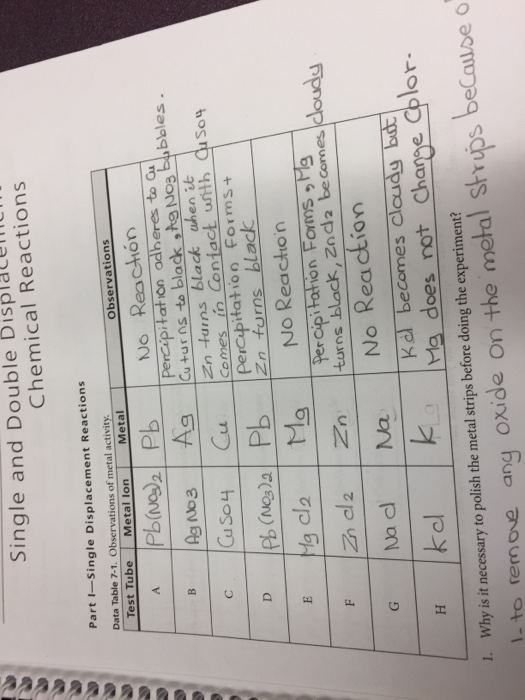 Single and Double Displacement
Chemical Reactions
Part I—Single Displacement Reactions
Data Table 7-1. Observations of metal activity.
Test Tube Metal Ion Metal Observations
A Pb(NO3)2 Pb No Reaction
B AgNO3 Ag Percipitation adheres to Cu
Cu turns to black, AgNO3 bubbles.
C CuSO4 Cu Zn turns black when it
comes in Contact with CuSO4
D Pb(NO3)2 Pb Percipitation Forms +
Zn turns black
E MgCl2 Mg No Reaction
F ZnCl2 Zn Percipitation Forms, Mg
turns black, ZnCl2 becomes cloudy
G NaCl Na No Reaction
H KCl K KCl becomes cloudy but
Mg does not change color.
1. Why is it necessary to polish the metal strips before doing the experiment?
1- to remove any oxide on the metal strips because o